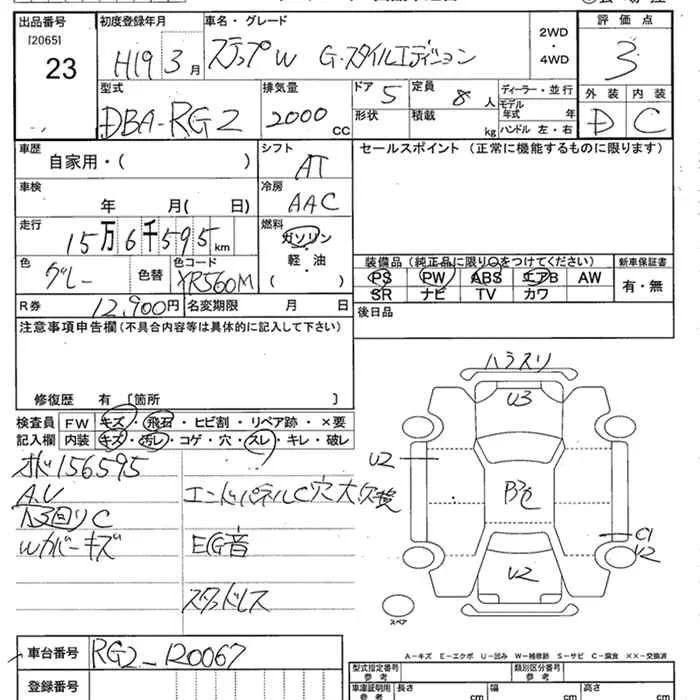 出品番号 初度登録年月 車名・グレード 評価点
[2065] 23 H19 3月 ステップW G・スタイルエディション 2WD・4WD 3
型式 排気量 ドア 5 定員 8 人 ディーラー・並行 外装 内装
DBA-RG2 2000 cc 形状 積載 kg モデル年式 年 ハンドル 左・右 D C
車歴 自家用・( ) シフト AT セールスポイント(正常に機能するものに限ります)
車検 年 月( 日) 冷房 AAC
走行 15万6千595km 燃料 ガソリン・軽・油 ( )
色 グレー 色替 色コード YR560M
装備品(純正品に限り○をつけてください) 新車保証書
PS PW ABS エアB AW 有・無
SR ナビ TV カワ
R券 12,900円 名変期限 月 日 後日品
注意事項申告欄(不具合内容等は具体的に記入して下さい)
修復歴 有 [箇所 ]
検査員 FW キズ・飛石・ヒビ割・リペア跡・×要
記入欄 内装 キズ・汚レ・コゲ・穴・スレ・キレ・破レ
オド156595
A.U エンドパネルC穴大
C
Wカバーキズ EG音
スタッドレス
U3
U2
C1
U2
U2
スペア
A-キズ E-エクボ U-凹み W-補修跡 S-サビ C-腐食 ××-交換済
車台番号 RG2-120067
登録番号
型式指定番号 参考 類別区分番号 参考
車庫証明用 参考 長さ cm 幅 cm 高さ cm